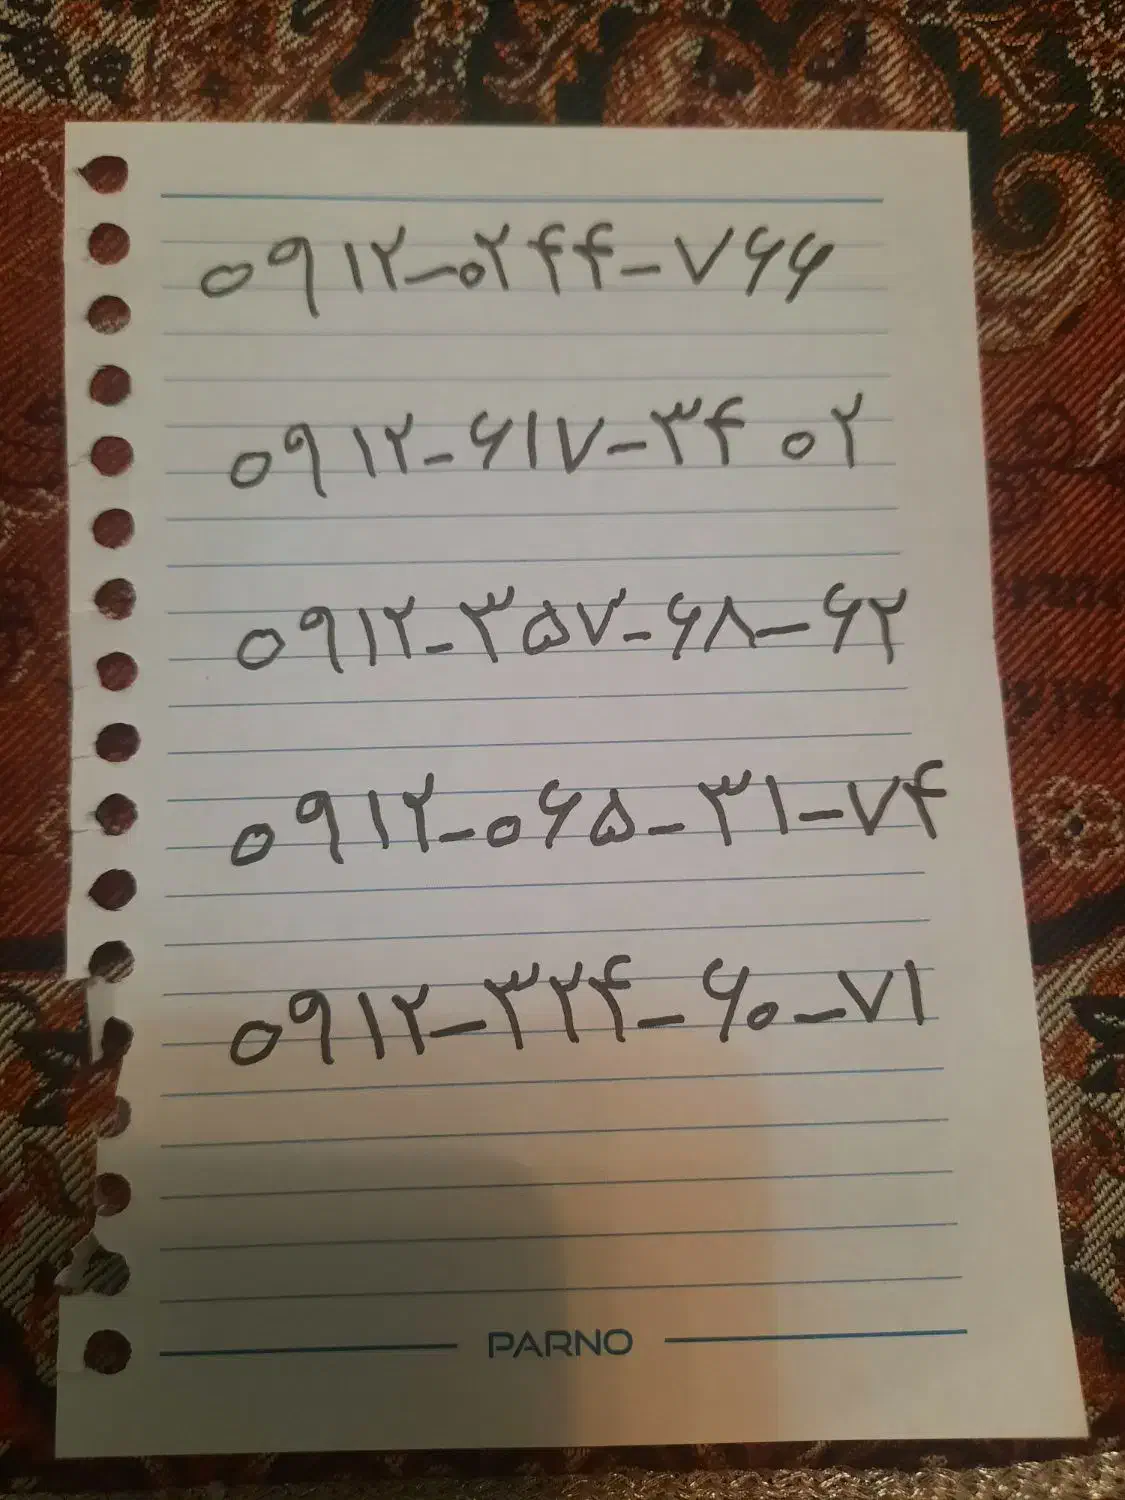 ۰۹۱۲-۰۲۴۴-۷۶۶
۰۹۱۲-۶۱۷-۳۴ ۰۲
۰۹۱۲-۳۵۷-۶۸-۶۲
۰۹۱۲-۰۶۵-۳۱-۷۴
۰۹۱۲-۳۲۴-۶۰-۷۱
PARNO